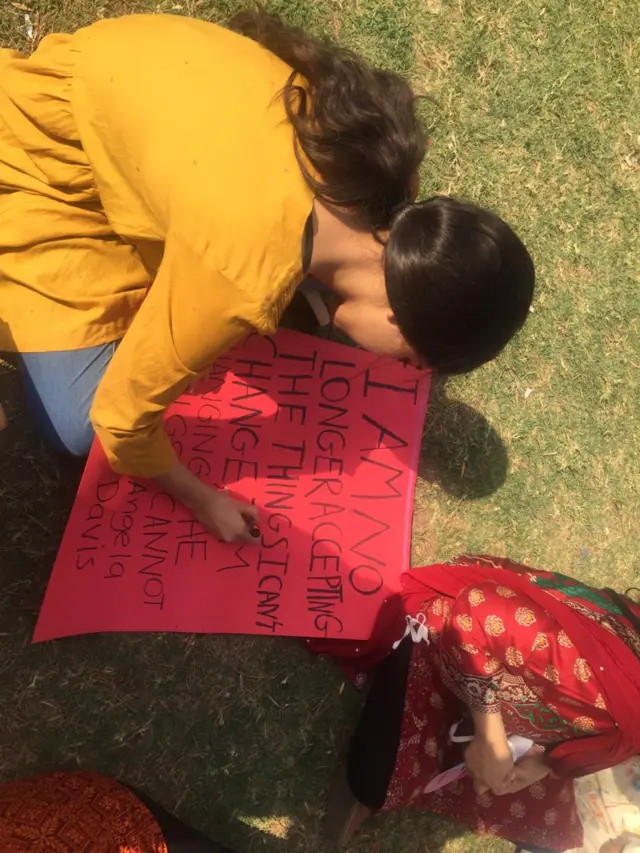 I AM NO
LONGER ACCEPTING
THE THINGS I CAN'T
CHANGE
CHANGING
CANNOT
Angela
Davis